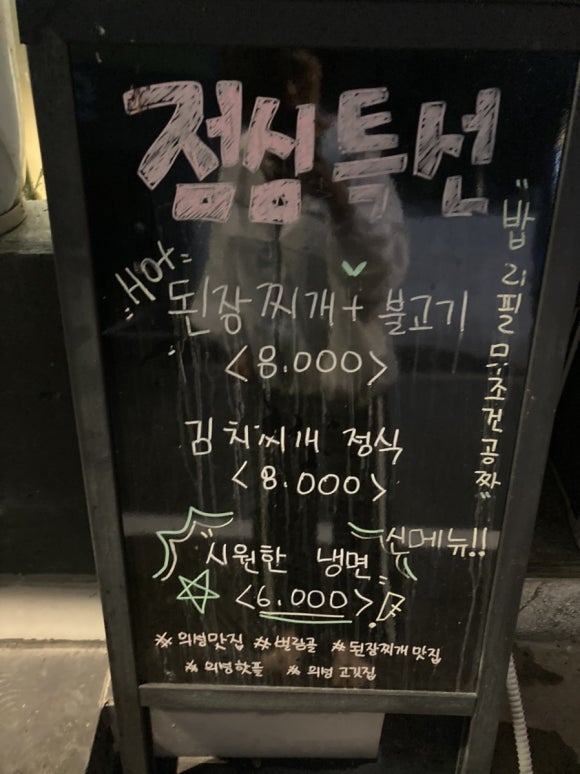 점심특선
HOT
된장찌개+불고기
<8.000>
김치찌개 정식
<8.000>
"밥 리필 무조건 공짜"
신메뉴!!
시원한 냉면
<6.000>
#의성맛집 #벼람골 #된장찌개맛집
#의성핫플 #의성 고깃집